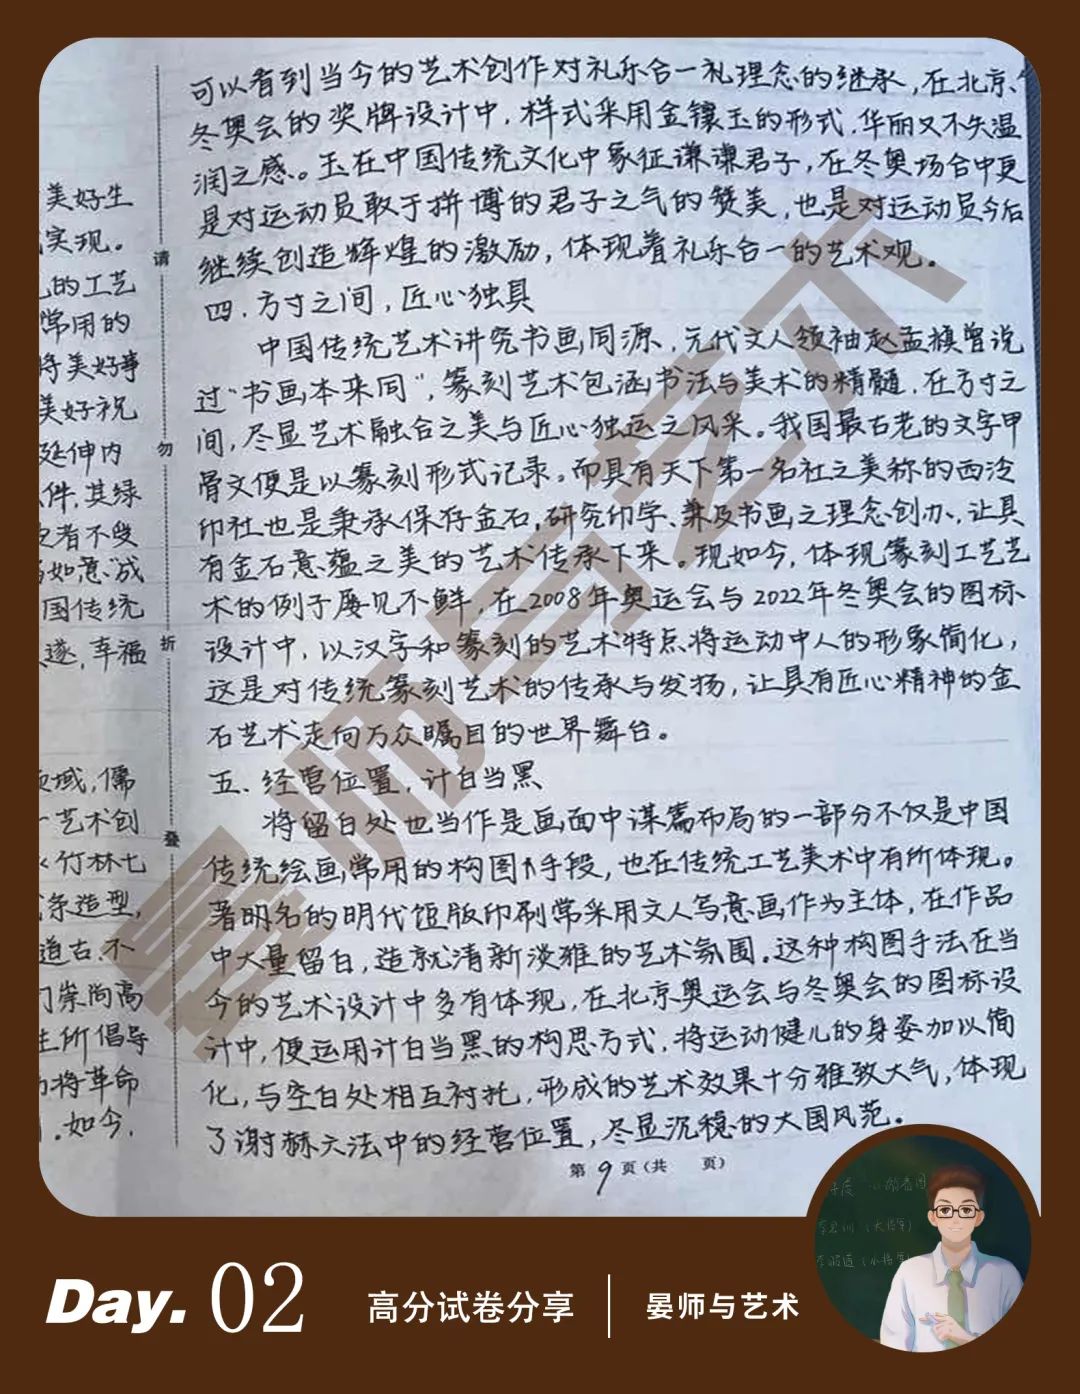 美好生
实现。
的工艺
常用的
将美好事
美好祝
延伸内
件,其绿
者不受
如意”成
国传统
遂,幸福
域,儒
艺术创
竹林七
造型,
道古、不
门崇尚高
生所倡导
将革命
。如今,
请
勿
折
叠
可以看到当今的艺术创作对礼乐合一礼理念的继承,在北京
冬奥会的奖牌设计中,样式采用金镶玉的形式,华丽又不失温
润之感。玉在中国传统文化中象征谦谦君子,在冬奥场合中更
是对运动员敢于拼博的君子之气的赞美,也是对运动员今后
继续创造辉煌的激励,体现着礼乐合一的艺术观。
四.方寸之间,匠心独具
中国传统艺术讲究书画同源,元代文人领袖赵孟頫曾说
过“书画本来同”,篆刻艺术包涵书法与美术的精髓,在方寸之
间,尽显艺术融合之美与匠心独运之风采。我国最古老的文字甲
骨文便是以篆刻形式记录。而具有天下第一名社之美称的西泠
印社也是秉承保存金石,研究印学、兼及书画之理念创办,让具
有金石意蕴之美的艺术传承下来。现如今,体现篆刻工艺艺
术的例子屡见不鲜,在2008年奥运会与2022年冬奥会的图标
设计中,以汉字和篆刻的艺术特点将运动中人的形象简化,
这是对传统篆刻艺术的传承与发扬,让具有匠心精神的金
石艺术走向万众瞩目的世界舞台。
五、经营位置,计白当黑
将留白处也当作是画面中谋篇布局的一部分不仅是中国
传统绘画常用的构图手段,也在传统工艺美术中有所体现。
著明名的明代饾版印刷常采用文人写意画作为主体,在作品
中大量留白,造就清新淡雅的艺术氛围。这种构图手法在当
今的艺术设计中多有体现,在北京奥运会与冬奥会的图标设
计中,便运用计白当黑的构思方式,将运动健儿的身姿加以简
化,与空白处相互衬托,形成的艺术效果十分雅致大气,体现
了谢赫六法中的经营位置,尽显沉稳的大国风范。
第9页(共 页)
晏师与艺术
Day. 02
高分试卷分享
晏师与艺术